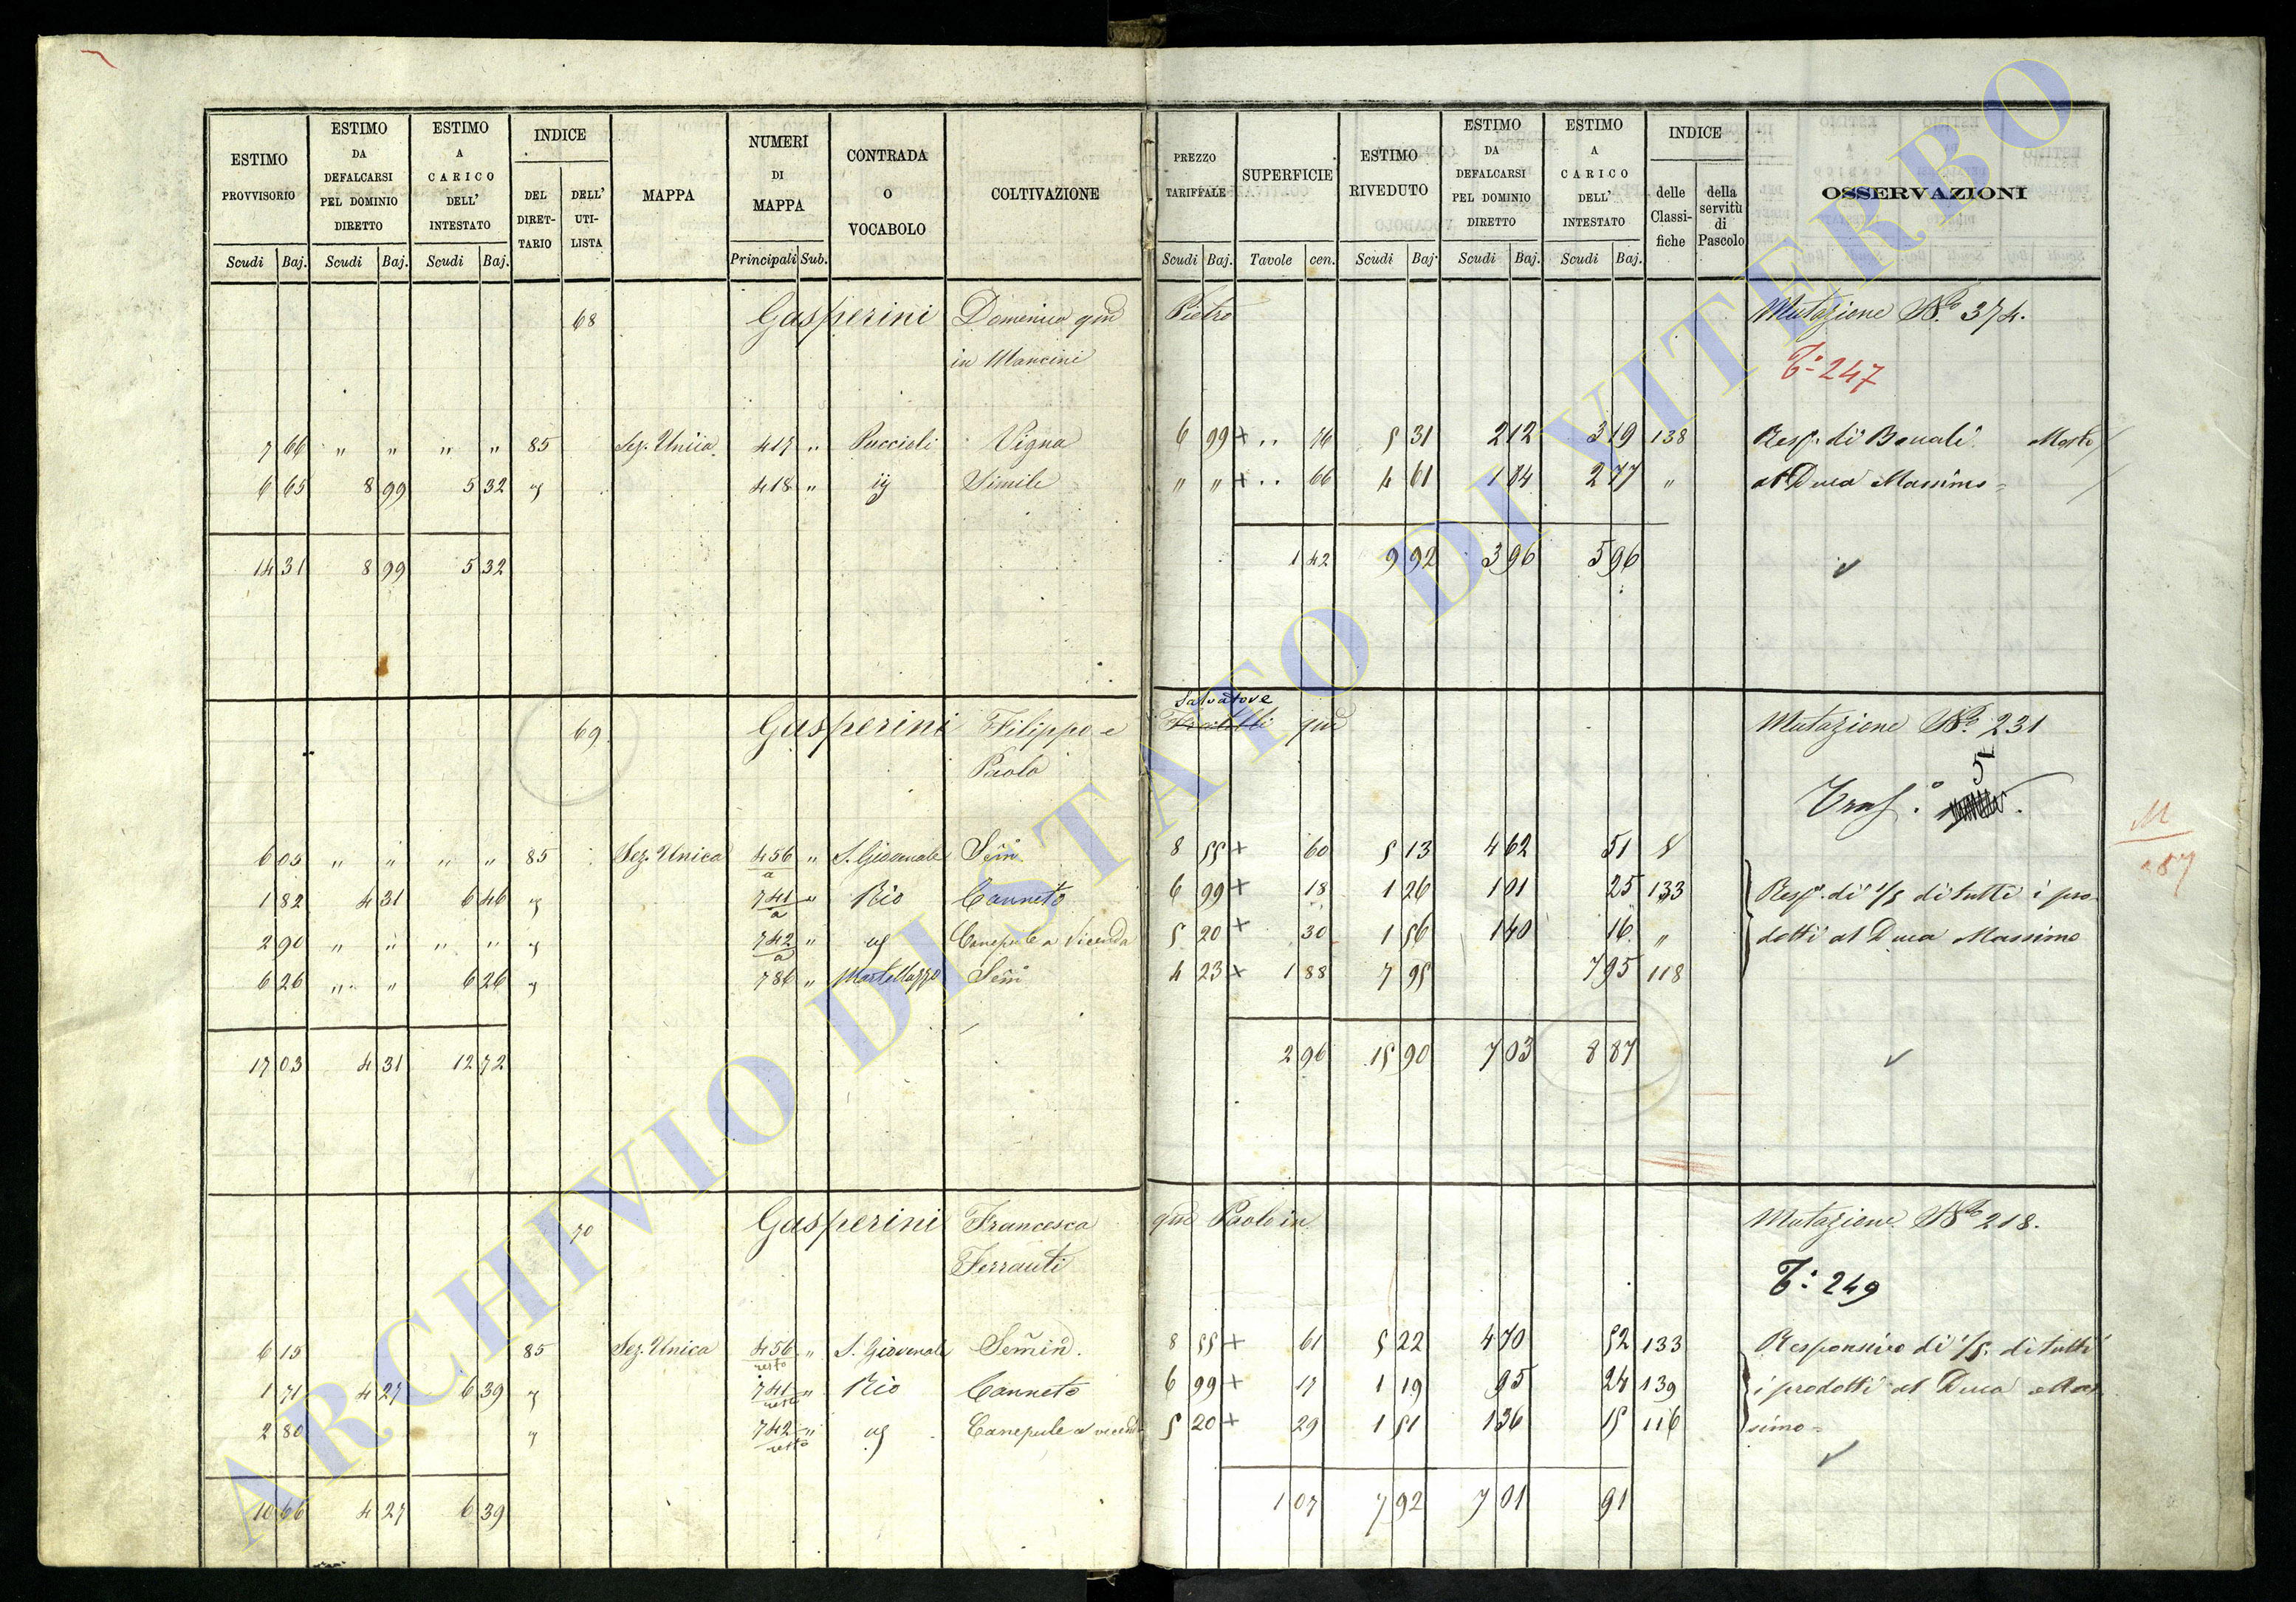 ESTIMO PROVVISORIO | ESTIMO DA DEFALCARSI PEL DOMINIO DIRETTO | ESTIMO A CARICO DELL' INTESTATO | INDICE | MAPPA | NUMERI DI MAPPA | CONTRADA O VOCABOLO | COLTIVAZIONE | PREZZO TARIFFALE | SUPERFICIE | ESTIMO RIVEDUTO | ESTIMO DA DEFALCARSI PEL DOMINIO DIRETTO | ESTIMO A CARICO DELL' INTESTATO | INDICE | OSSERVAZIONI
DEL DIRETTARIO | DELL' UTILISTA | delle Classifiche | della servitù di Pascolo
Scudi Baj. | Scudi Baj. | Scudi Baj. | Principali Sub. | Scudi Baj. | Tavole cen. | Scudi Baj. | Scudi Baj. | Scudi Baj.
68 Gasperini Domenico qm Pietro Mutazione No. 374.
in Mancini T.o 247
7 66 " " " " 85 Sez. Unica 417 " Puccioli Vigna 6 99 + .. 76 5 31 2 12 3 19 138
6 65 8 99 5 32 418 " Simile " " + .. 66 4 61 1 84 2 77 " al Duca Massimo
14 31 8 99 5 32 1 42 9 92 3 96 5 96
69 Gasperini Filippo e Salvatore Fratelli qm Mutazione No. 231
Paolo 51
6 05 " " " " 85 Sez. Unica 456/a " S. Giovenale Sem. 8 55 + 60 5 13 4 62 51
1 82 4 31 6 46 741/a " Rio Canneto 6 99 + 18 1 26 1 01 25 133 Resp. di 1/5 di tutti i pro-
2 90 " " " " 742/a " Canepule a vicenda 5 20 + 30 1 56 1 40 16 " dotti al Duca Massimo
6 26 " " 6 26 786 " Martellazzo Sem. 4 23 + 1 88 7 95 7 95 118
17 03 4 31 12 72 2 96 15 90 7 03 8 87
70 Gasperini Francesca qm Paolo in Mutazione No. 218.
Ferranti T.o 249
6 15 85 Sez. Unica 456/resto " S. Giovenale Semin. 8 55 + 61 5 22 4 70 52 133 Responsivo di 1/5 di tutti
1 71 4 27 6 39 741/resto " Rio Canneto 6 99 + 17 1 19 95 24 139 i prodotti al Duca Mas-
2 80 742/resto " Canepule a vicenda 5 20 + 29 1 51 1 36 15 116 simo
10 66 4 27 6 39 1 07 7 92 7 01 91
ARCHIVIO DI STATO DI VITERBO